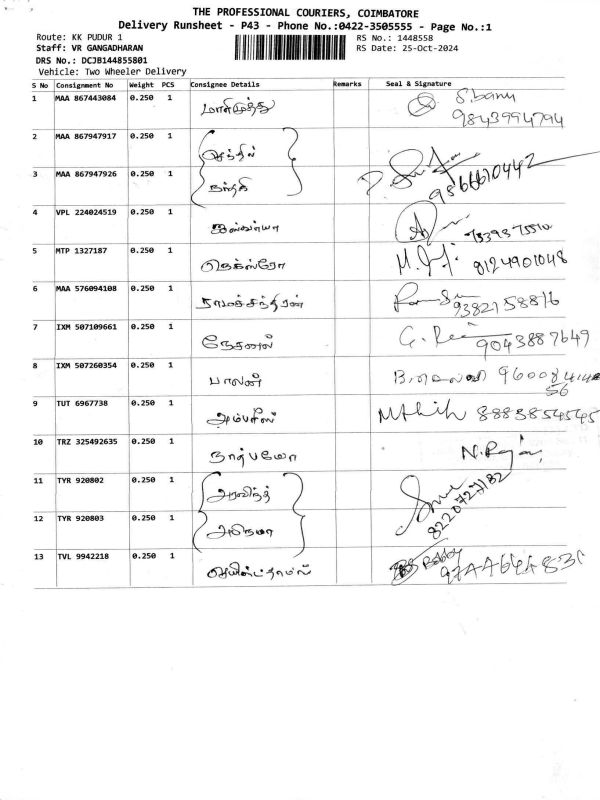 THE PROFESSIONAL COURIERS, COIMBATORE
Delivery Runsheet - P43 - Phone No.:0422-3505555 - Page No.:1
Route: KK PUDUR 1
RS No.: 1448558
Staff: VR GANGADHARAN
RS Date: 25-Oct-2024
DRS No.: DCJB144855801
Vehicle: Two Wheeler Delivery
S No Consignment No Weight PCS Consignee Details Remarks Seal & Signature
1 MAA 867443084 0.250 1 மாரிமுத்து S.banu
9843994794
2 MAA 867947917 0.250 1 செந்தில்
3 MAA 867947926 0.250 1 நந்தினி 9866610442
4 VPL 224024519 0.250 1 ஐஸ்வர்யா 7339375510
5 MTP 1327187 0.250 1 8124901048
6 MAA 576094108 0.250 1 ராமச்சந்திரன் 9382158816
7 IXM 507109661 0.250 1 நேசனல் 9043887649
8 IXM 507260354 0.250 1 பாலன்
9 TUT 6967738 0.250 1 8883854545
10 TRZ 325492635 0.250 1 N.Raja
11 TYR 920802 0.250 1 அரவிந்த்
12 TYR 920803 0.250 1 8220727182
13 TVL 9942218 0.250 1